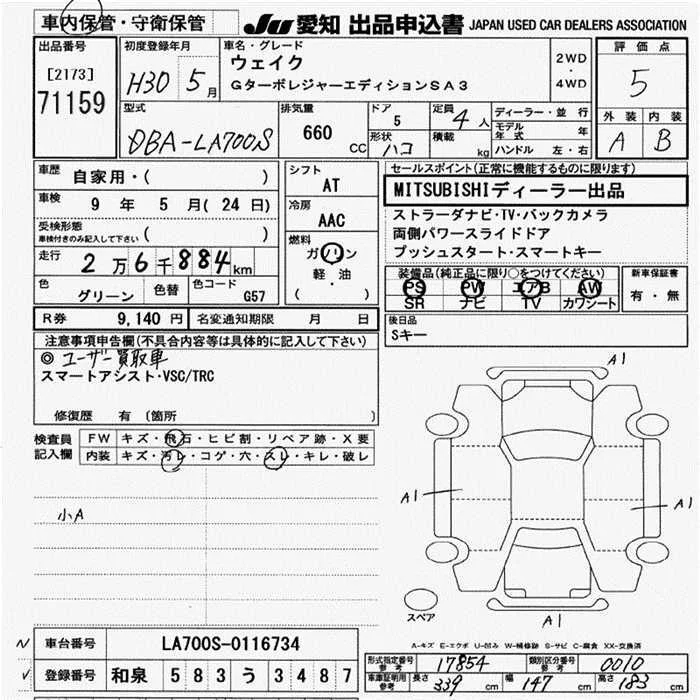 車内保管・守衛保管 JU 愛知 出品申込書 JAPAN USED CAR DEALERS ASSOCIATION
出品番号 [2173] 71159
初度登録年月 H30 5月
車名・グレード ウェイク GターボレジャーエディションSA3
2WD・4WD
評価点 5
外装 内装
A B
型式 DBA-LA700S
排気量 660 CC
ドア 5
形状 ハコ
定員 4人
積載 kg
ディーラー・並行
モデル年式 年
ハンドル 左・右
車歴 自家用・( )
車検 9年 5月(24日)
受検形態 車検付きのみ記入して下さい ( )
走行 2万6千884km
色 グリーン 色替 色コード G57
シフト AT
冷房 AAC
燃料 ガソリン 軽・油 ( )
セールスポイント(正常に機能するものに限ります)
MITSUBISHIディーラー出品
ストラーダナビ・TV・バックカメラ
両側パワースライドドア
プッシュスタート・スマートキー
装備品(純正品に限り○をつけてください)
PS PW エアB AW
SR ナビ TV カワシート
新車保証書 有・無
R券 9,140円 名変通知期限 月 日
後日品 Sキー
注意事項申告欄(不具合内容等は具体的に記入して下さい)
◎ ユーザー買取車
スマートアシスト・VSC/TRC
修復歴 有 〔箇所 〕
検査員記入欄
FW キズ・飛石・ヒビ割・リペア跡・X要
内装 キズ・汚レ・コゲ・穴・スレ・キレ・破レ
小A
A1
A1
A1
A1
スペア
A-キズ E-エクボ U-凹み W-補修跡 S-サビ C-腐食 XX-交換済
車台番号 LA700S-0116734
登録番号 和泉 583 う 3487
型式指定番号 参考 17854 類別区分番号 参考 0010
車庫証明用 参考 長さ 339 cm 幅 147 cm 高さ 183 cm